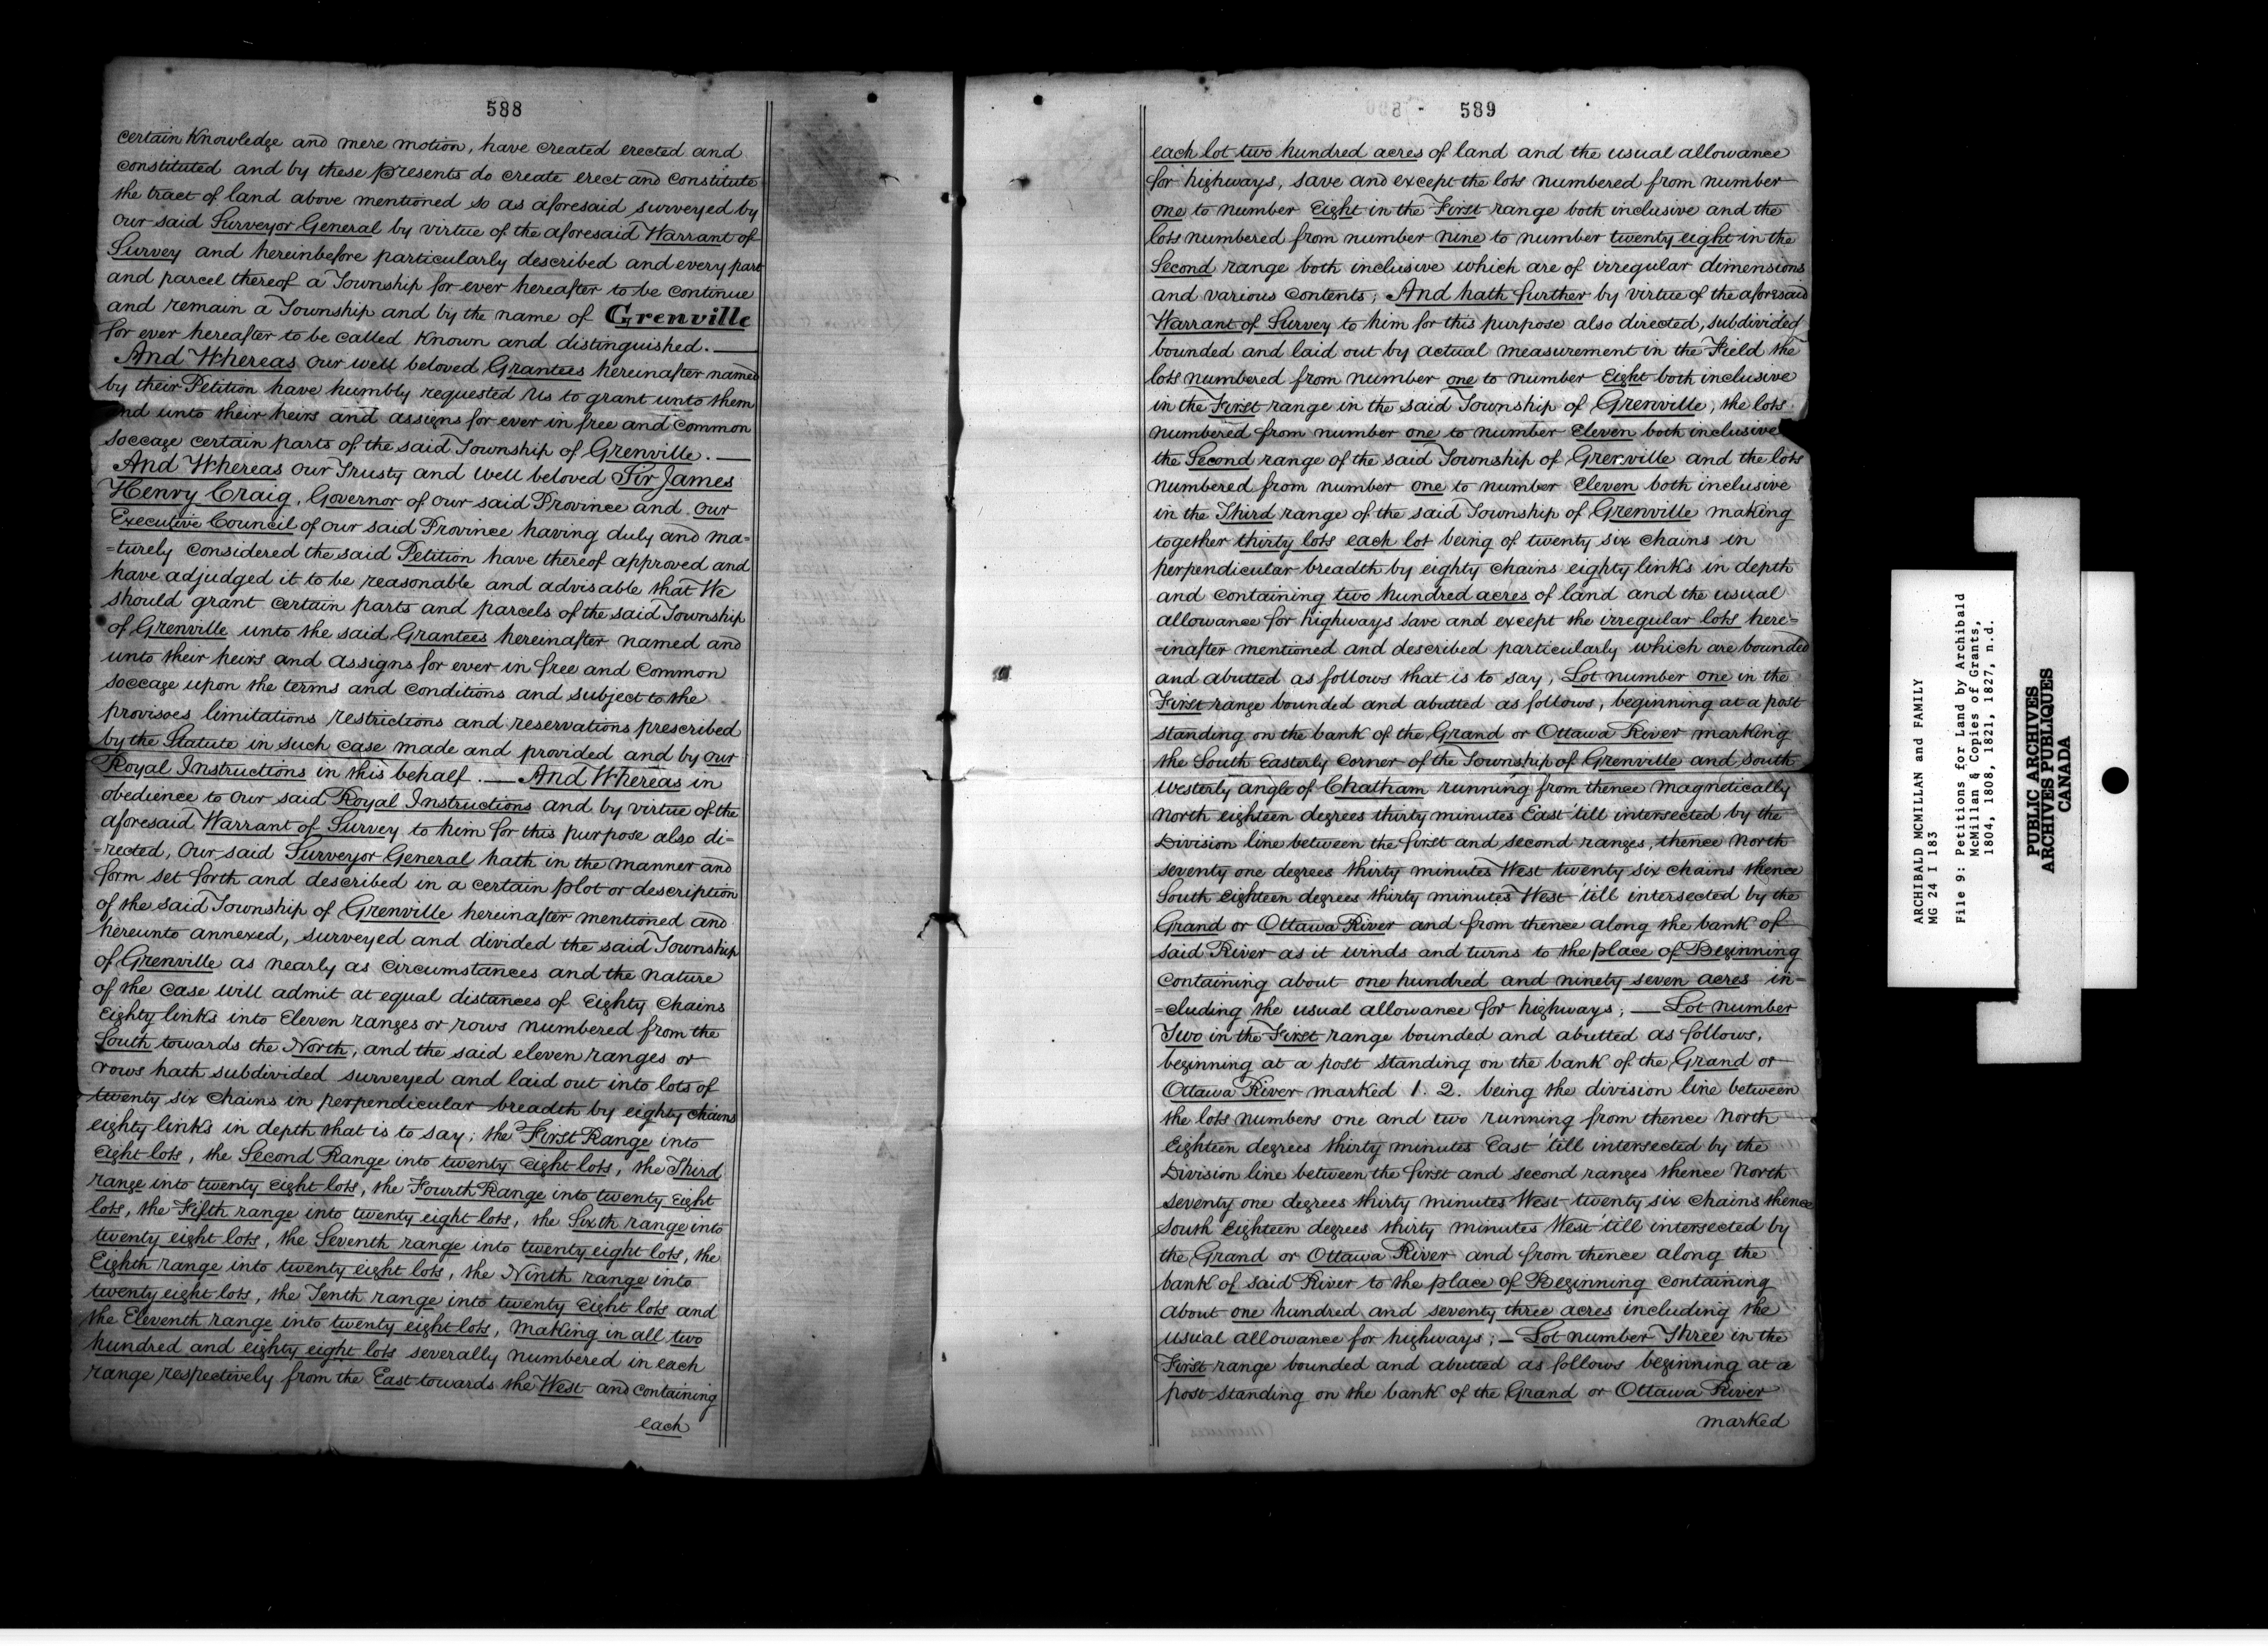 588
certain Knowledge and mere motion, have created erected and
constituted and by these presents do create erect and constitute
the tract of land above mentioned so as aforesaid surveyed by
our said Surveyor General by virtue of the aforesaid Warrant of
Survey and hereinbefore particularly described and every part
and parcel thereof a Township for ever hereafter to be continue
and remain a Township and by the name of Grenville
for ever hereafter to be called Known and distinguished. —
And Whereas our well beloved Grantees hereinafter named
by their Petition have humbly requested Us to grant unto them
and unto their heirs and assigns for ever in free and Common
Soccage certain parts of the said Township of Grenville. —
And Whereas our Trusty and well beloved Sir James
Henry Craig, Governor of our said Province and our
Executive Council of our said Province having duly and ma=
=turely considered the said Petition have thereof approved and
have adjudged it to be reasonable and advisable that We
should grant certain parts and parcels of the said Township
of Grenville unto the said Grantees hereinafter named and
unto their heirs and assigns for ever in free and Common
soccage upon the terms and conditions and subject to the
provisoes limitations restrictions and reservations prescribed
by the Statute in such case made and provided and by our
Royal Instructions in this behalf. — And Whereas in
obedience to our said Royal Instructions and by virtue of the
aforesaid Warrant of Survey to him for this purpose also di=
=rected, our said Surveyor General hath in the manner and
form set forth and described in a certain plot or description
of the said Township of Grenville hereinafter mentioned and
hereunto annexed, surveyed and divided the said Township
of Grenville as nearly as circumstances and the nature
of the case will admit at equal distances of Eighty Chains
Eighty links into Eleven ranges or rows numbered from the
South towards the North, and the said eleven ranges or
rows hath subdivided surveyed and laid out into lots of
twenty six chains in perpendicular breadth by eighty chains
eighty links in depth that is to say; the First Range into
Eight lots, the Second Range into twenty Eight lots, the Third
range into twenty Eight lots, the Fourth Range into twenty Eight
lots, the Fifth range into twenty eight lots, the Sixth range into
twenty eight lots, the Seventh range into twenty eight lots, the
Eighth range into twenty eight lots, the Ninth range into
twenty eight lots, the Tenth range into twenty Eight lots and
the Eleventh range into twenty eight lots, Making in all two
hundred and eighty eight lots severally numbered in each
range respectively from the East towards the West and containing
each
589
each lot two hundred acres of land and the usual allowance
for highways, save and except the lots numbered from number
one to number Eight in the First range both inclusive and the
lots numbered from number nine to number twenty eight in the
Second range both inclusive which are of irregular dimensions
and various contents; And hath further by virtue of the aforesaid
Warrant of Survey to him for this purpose also directed, subdivided
bounded and laid out by actual measurement in the Field the
lots numbered from number one to number Eight both inclusive
in the First range in the said Township of Grenville, the lots
numbered from number one to number Eleven both inclusive
the Second range of the said Township of Grenville and the lots
numbered from number one to number Eleven both inclusive
in the Third range of the said Township of Grenville making
together thirty lots each lot being of twenty six chains in
perpendicular breadth by eighty chains eighty links in depth
and containing two hundred acres of land and the usual
allowance for highways save and except the irregular lots here=
=inafter mentioned and described particularly which are bounded
and abutted as follows that is to say, Lot number one in the
First range bounded and abutted as follows, beginning at a post
standing on the bank of the Grand or Ottawa River marking
the South Easterly Corner of the Township of Grenville and South
westerly angle of Chatham running from thence magnetically
North eighteen degrees thirty minutes East 'till intersected by the
Division line between the first and second ranges, thence North
seventy one degrees thirty minutes West twenty six chains thence
South Eighteen degrees thirty minutes West 'till intersected by the
Grand or Ottawa River and from thence along the bank of
said River as it winds and turns to the place of Beginning
Containing about one hundred and ninety seven acres in=
=cluding the usual allowance for highways; — Lot number
Two in the First range bounded and abutted as follows,
beginning at a post standing on the bank of the Grand or
Ottawa River marked 1. 2. being the division line between
the lots numbers one and two running from thence North
Eighteen degrees thirty minutes East 'till intersected by the
Division line between the first and second ranges thence North
seventy one degrees thirty minutes West twenty six chains thence
South Eighteen degrees thirty minutes West 'till intersected by
the Grand or Ottawa River and from thence along the
bank of said River to the place of Beginning containing
about one hundred and seventy three acres including the
usual allowance for highways; — Lot number Three in the
First range bounded and abutted as follows beginning at a
post standing on the bank of the Grand or Ottawa River
marked
ARCHIBALD MCMILLAN and FAMILY
MG 24 I 183
File 9: Petitions for Land by Archibald
McMillan & Copies of Grants,
1804, 1808, 1821, 1827, n.d.
PUBLIC ARCHIVES
ARCHIVES PUBLIQUES
CANADA